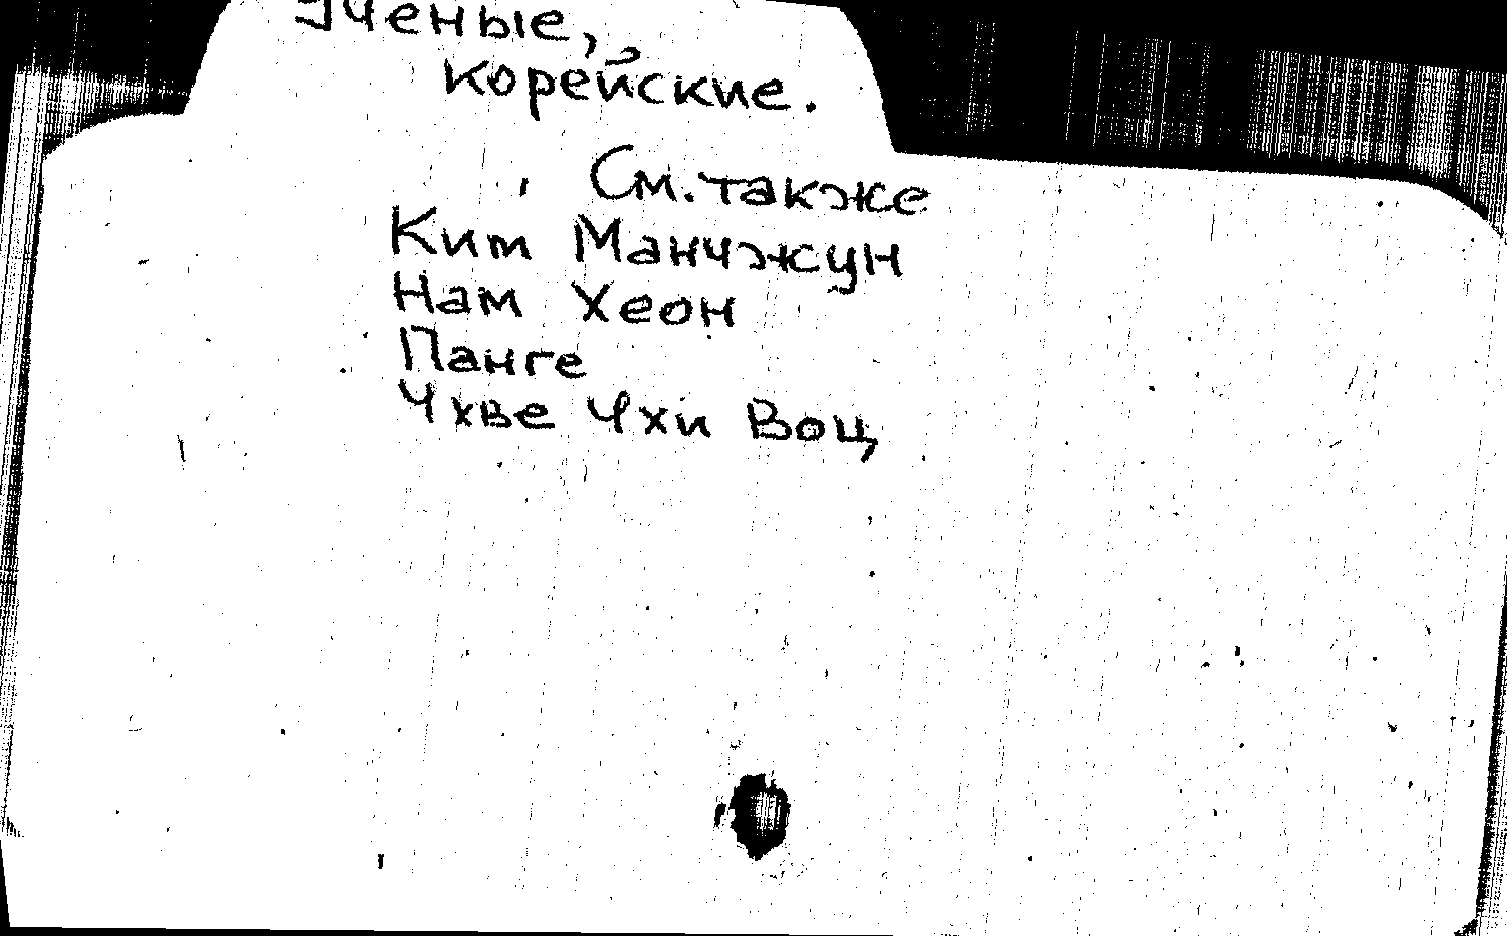 Ученые,
корейские.
См. также
Ким Манчжун
Нам Хеон
Панге
Чхве Чхи Воц